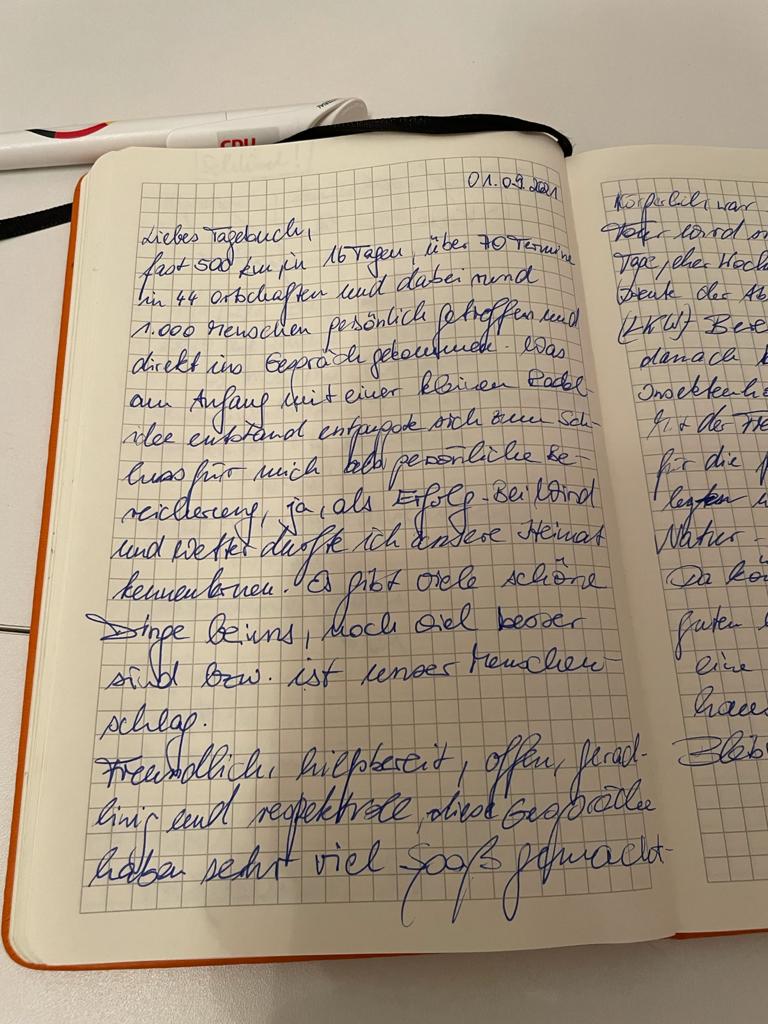 CDU
01.09.2021
Liebes Tagebuch,
fast 500 km in 16 Tagen, über 70 Termine
in 44 Ortschaften und dabei rund
1.000 Menschen persönlich getroffen und
direkt ins Gespräch gekommen. Was
am Anfang mit einer kleinen Radel-
idee entstand entpuppte sich zum Sch-
luss für mich als persönliche Be-
reicherung, ja, als Erfolg. Bei Wind
und Wetter durfte ich unsere Heimat
kennenlernen. Es gibt viele schöne
Dinge bei uns, noch viel besser
sind bzw. ist unser Menschen-
schlag.
Freundlich, hilfsbereit, offen, gerad-
linig und respektvoll, diese Gespräche
haben sehr viel Spaß gemacht.
Körperlich war
Tour wird
Tage, eher Woch
Heute der
(LKW) Bese
danach
Insektenh
Mit der
für die
Natur-
Da kö
guten
eine
haus